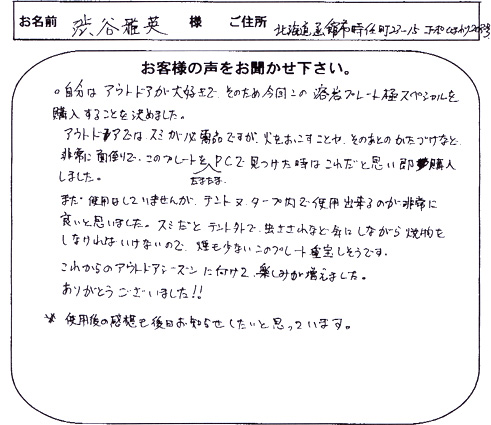 お名前 渋谷雅英 様 ご住所 北海道函館市時任町23-15
お客様の声をお聞かせ下さい。
。自分はアウトドアが大好きで、そのため今回この溶岩プレート極スペシャルを
購入することを決めました。
アウトドアではスミが必需品ですが、火をおこすことや、そのあとのかたづけなど、
非常に面倒りで、このプレートをPCで見つけた時はこれだと思い即購入
たまたま
しました。
まだ使用はしていませんが、テント又、タープ内で使用出来るのが非常に
良いと思いました。スミだとテント外で、虫さされなど気にしながら焼物を
しなければいけないので、煙も少ないこのプレート重宝しそうです。
これからのアウトドアシーズンに付けて、楽しみが増えました。
ありがとうございました!!
※ 使用後の感想も後日お知らせしたいと思っています。